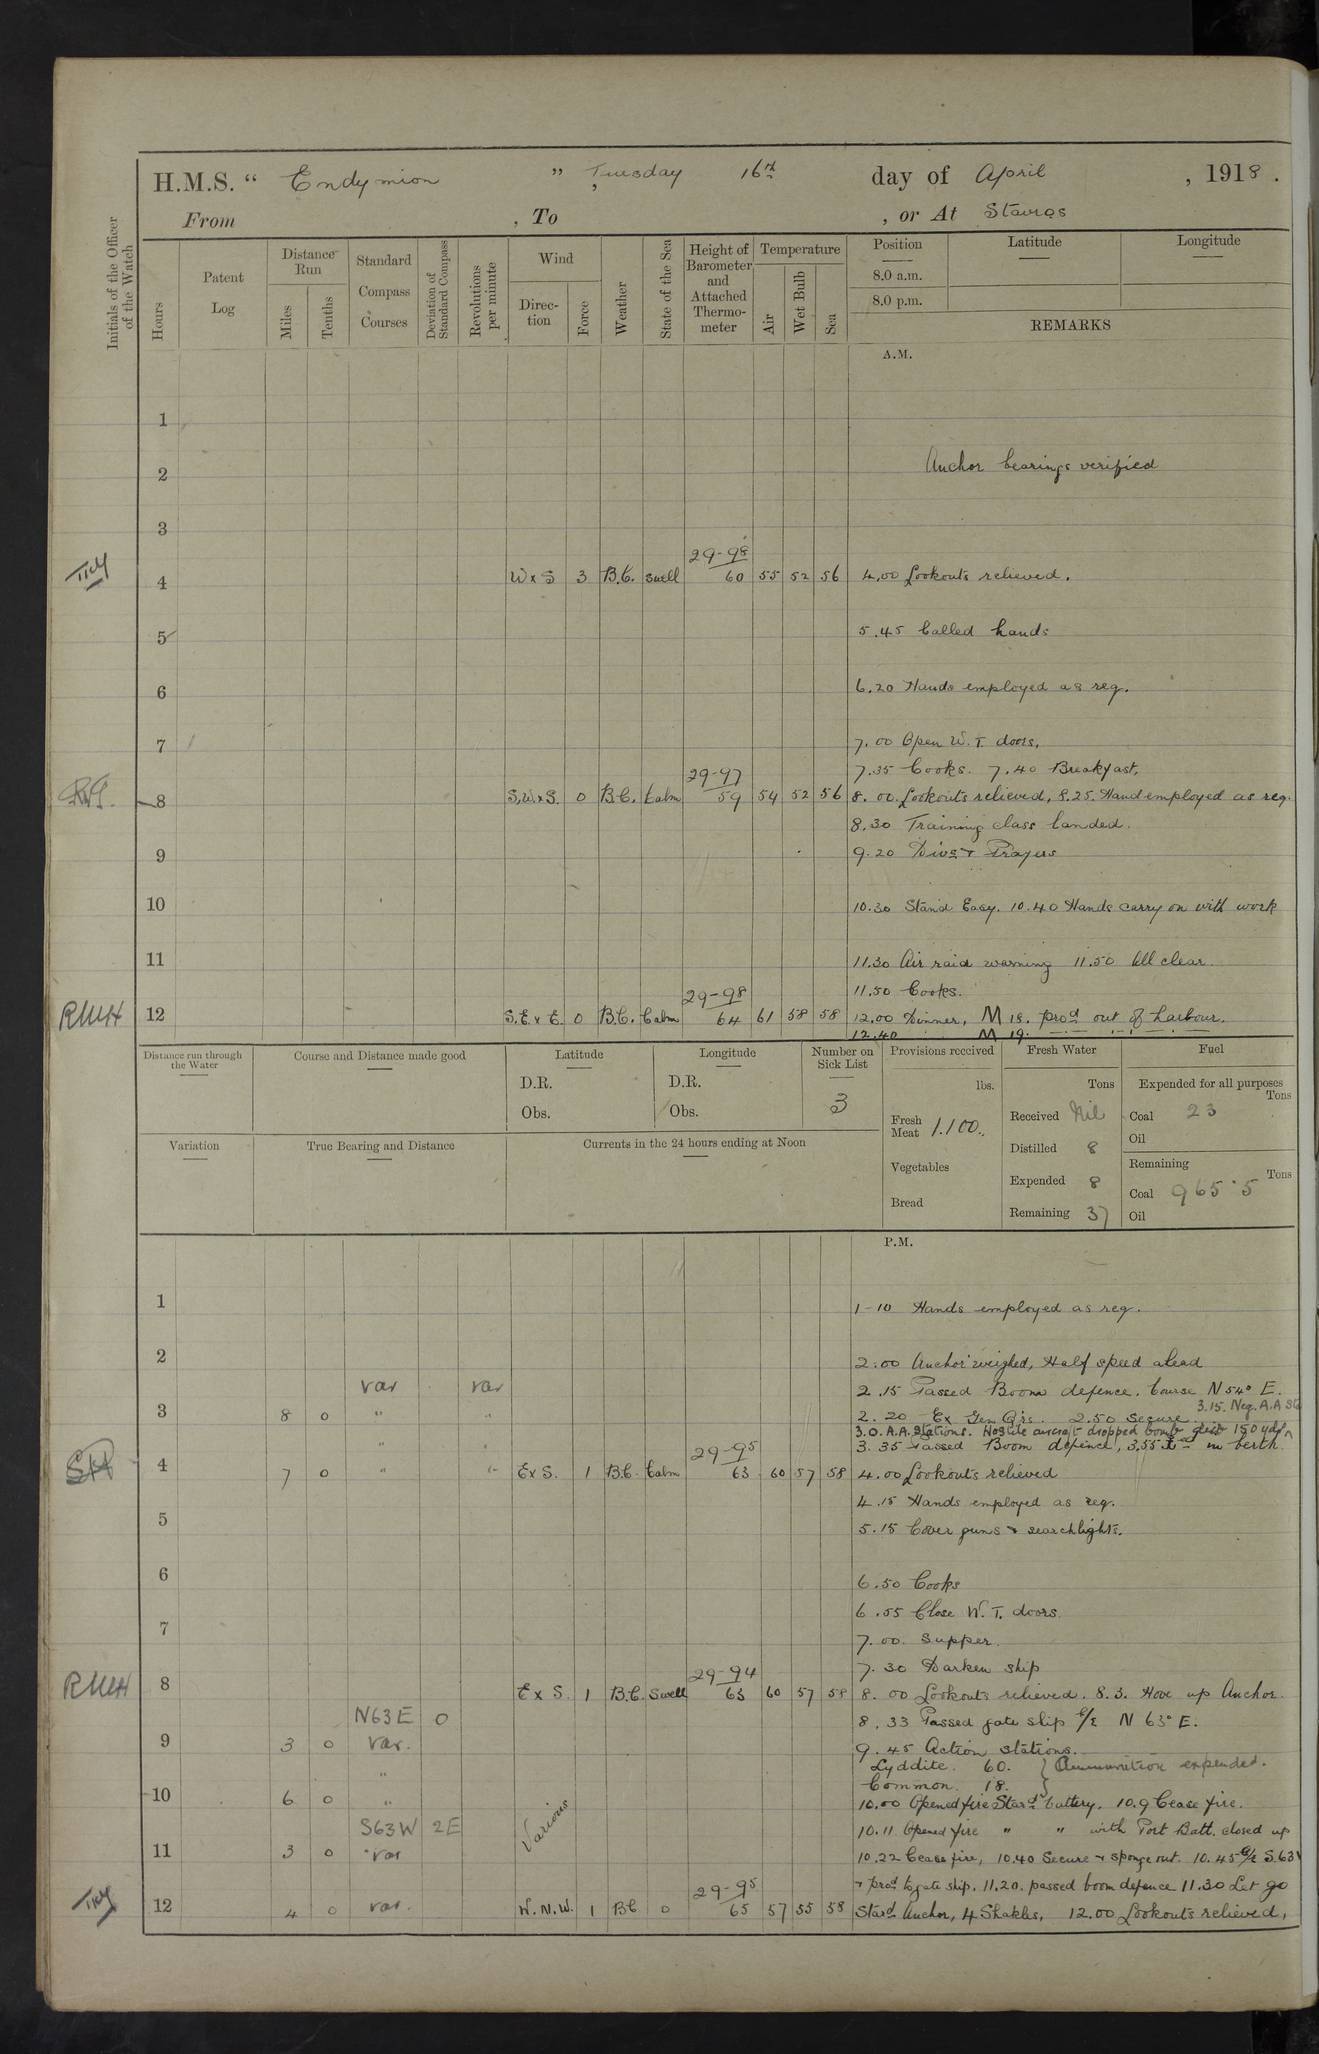 H.M.S. " Endymion " , Tuesday 16th day of April , 1918 .
From , To , or At Stavros
Initials of the Officer of the Watch
Hours
Patent Log
Distance Run
Miles
Tenths
Standard Compass Courses
Deviation of Standard Compass
Revolutions per minute
Wind
Direc-tion
Force
Weather
State of the Sea
Height of Barometer and Attached Thermo-meter
Temperature
Air
Wet Bulb
Sea
Position
8.0 a.m.
8.0 p.m.
Latitude
Longitude
REMARKS
A.M.
1
2 Anchor bearings verified
3
29-98
4 W x S 3 B.C. Swell 60 55 52 56 4.00 Lookouts relieved.
5 5.45 Called hands
6 6.20 Hands employed as reg.
7 7.00 Open W.T. doors.
29-97 7.35 Cooks. 7.40 Breakfast.
8 S.W x S. 0 B.C. Calm 59 54 52 56 8.00. Lookouts relieved, 8.25. Hand employed as reg.
8.30 Training class landed.
9 9.20 Divs + Prayers
10 10.30 Stand Easy. 10.40 Hands carry on with work
11 11.30 Air raid warning 11.50 All clear.
29-98 11.50 Cooks.
RWH 12 S.E. x E. 0 B.C. Calm 64 61 58 58 12.00 Dinner, M 18. procd out of harbour.
12.40 M 19. — " — " — " —
Distance run through the Water
Course and Distance made good
Latitude
D.R.
Obs.
Longitude
D.R.
Obs.
Number on Sick List
3
Provisions received
lbs.
Fresh Meat 1.100.
Vegetables
Bread
Fresh Water
Tons
Received Nil
Distilled 8
Expended 8
Remaining 37
Fuel
Expended for all purposes
Tons
Coal 23
Oil
Remaining
Tons
Coal 965.5
Oil
Variation
True Bearing and Distance
Currents in the 24 hours ending at Noon
P.M.
1 1-10 Hands employed as reg.
2 2.00 Anchor weighed, Half speed ahead
var var 2.15 Passed Boom defence. Course N 54° E.
3.15. Neg. A.A St
3 8 0 " " 2.20 Ex Gen Qrs. 2.50 Secure
3.0. A.A. Stations. Hostile aircraft dropped bomb dist 150 yds
" " 29-95 3.35 Passed Boom defence, 3.55 in berth
4 7 0 " " E x S. 1 B.C. Calm 63 60 57 58 4.00 Lookouts relieved
4.15 Hands employed as reg.
5 5.15 Cover guns + searchlights.
6 6.50 Cooks
6.55 Close W.T. doors.
7 7.00. Supper.
29-94 7.30 Darken ship
RWH 8 E x S. 1 B.C. Swell 63 60 57 58 8.00 Lookouts relieved. 8.3. Hove up Anchor.
N63E 0 8.33 Passed gate ship c/c N 63° E.
9 3 0 var. 9.45 Action stations.
" Lyddite. 60. } Ammunition expended.
Common. 18. }
10 6 0 " 10.00 Opened fire Stard battery. 10.9 Cease fire.
S63W 2E Various 10.11 Opened fire " " with Port Batt. closed up
11 3 0 var 10.22 Cease fire, 10.40 Secure + sponge out. 10.45 c/c S.63W
29-95 + procd to gate ship. 11.20. passed boom defence 11.30 Let go
12 4 0 var. W.N.W. 1 BC 0 65 57 55 58 Stard Anchor, 4 Shakles, 12.00 Lookouts relieved,